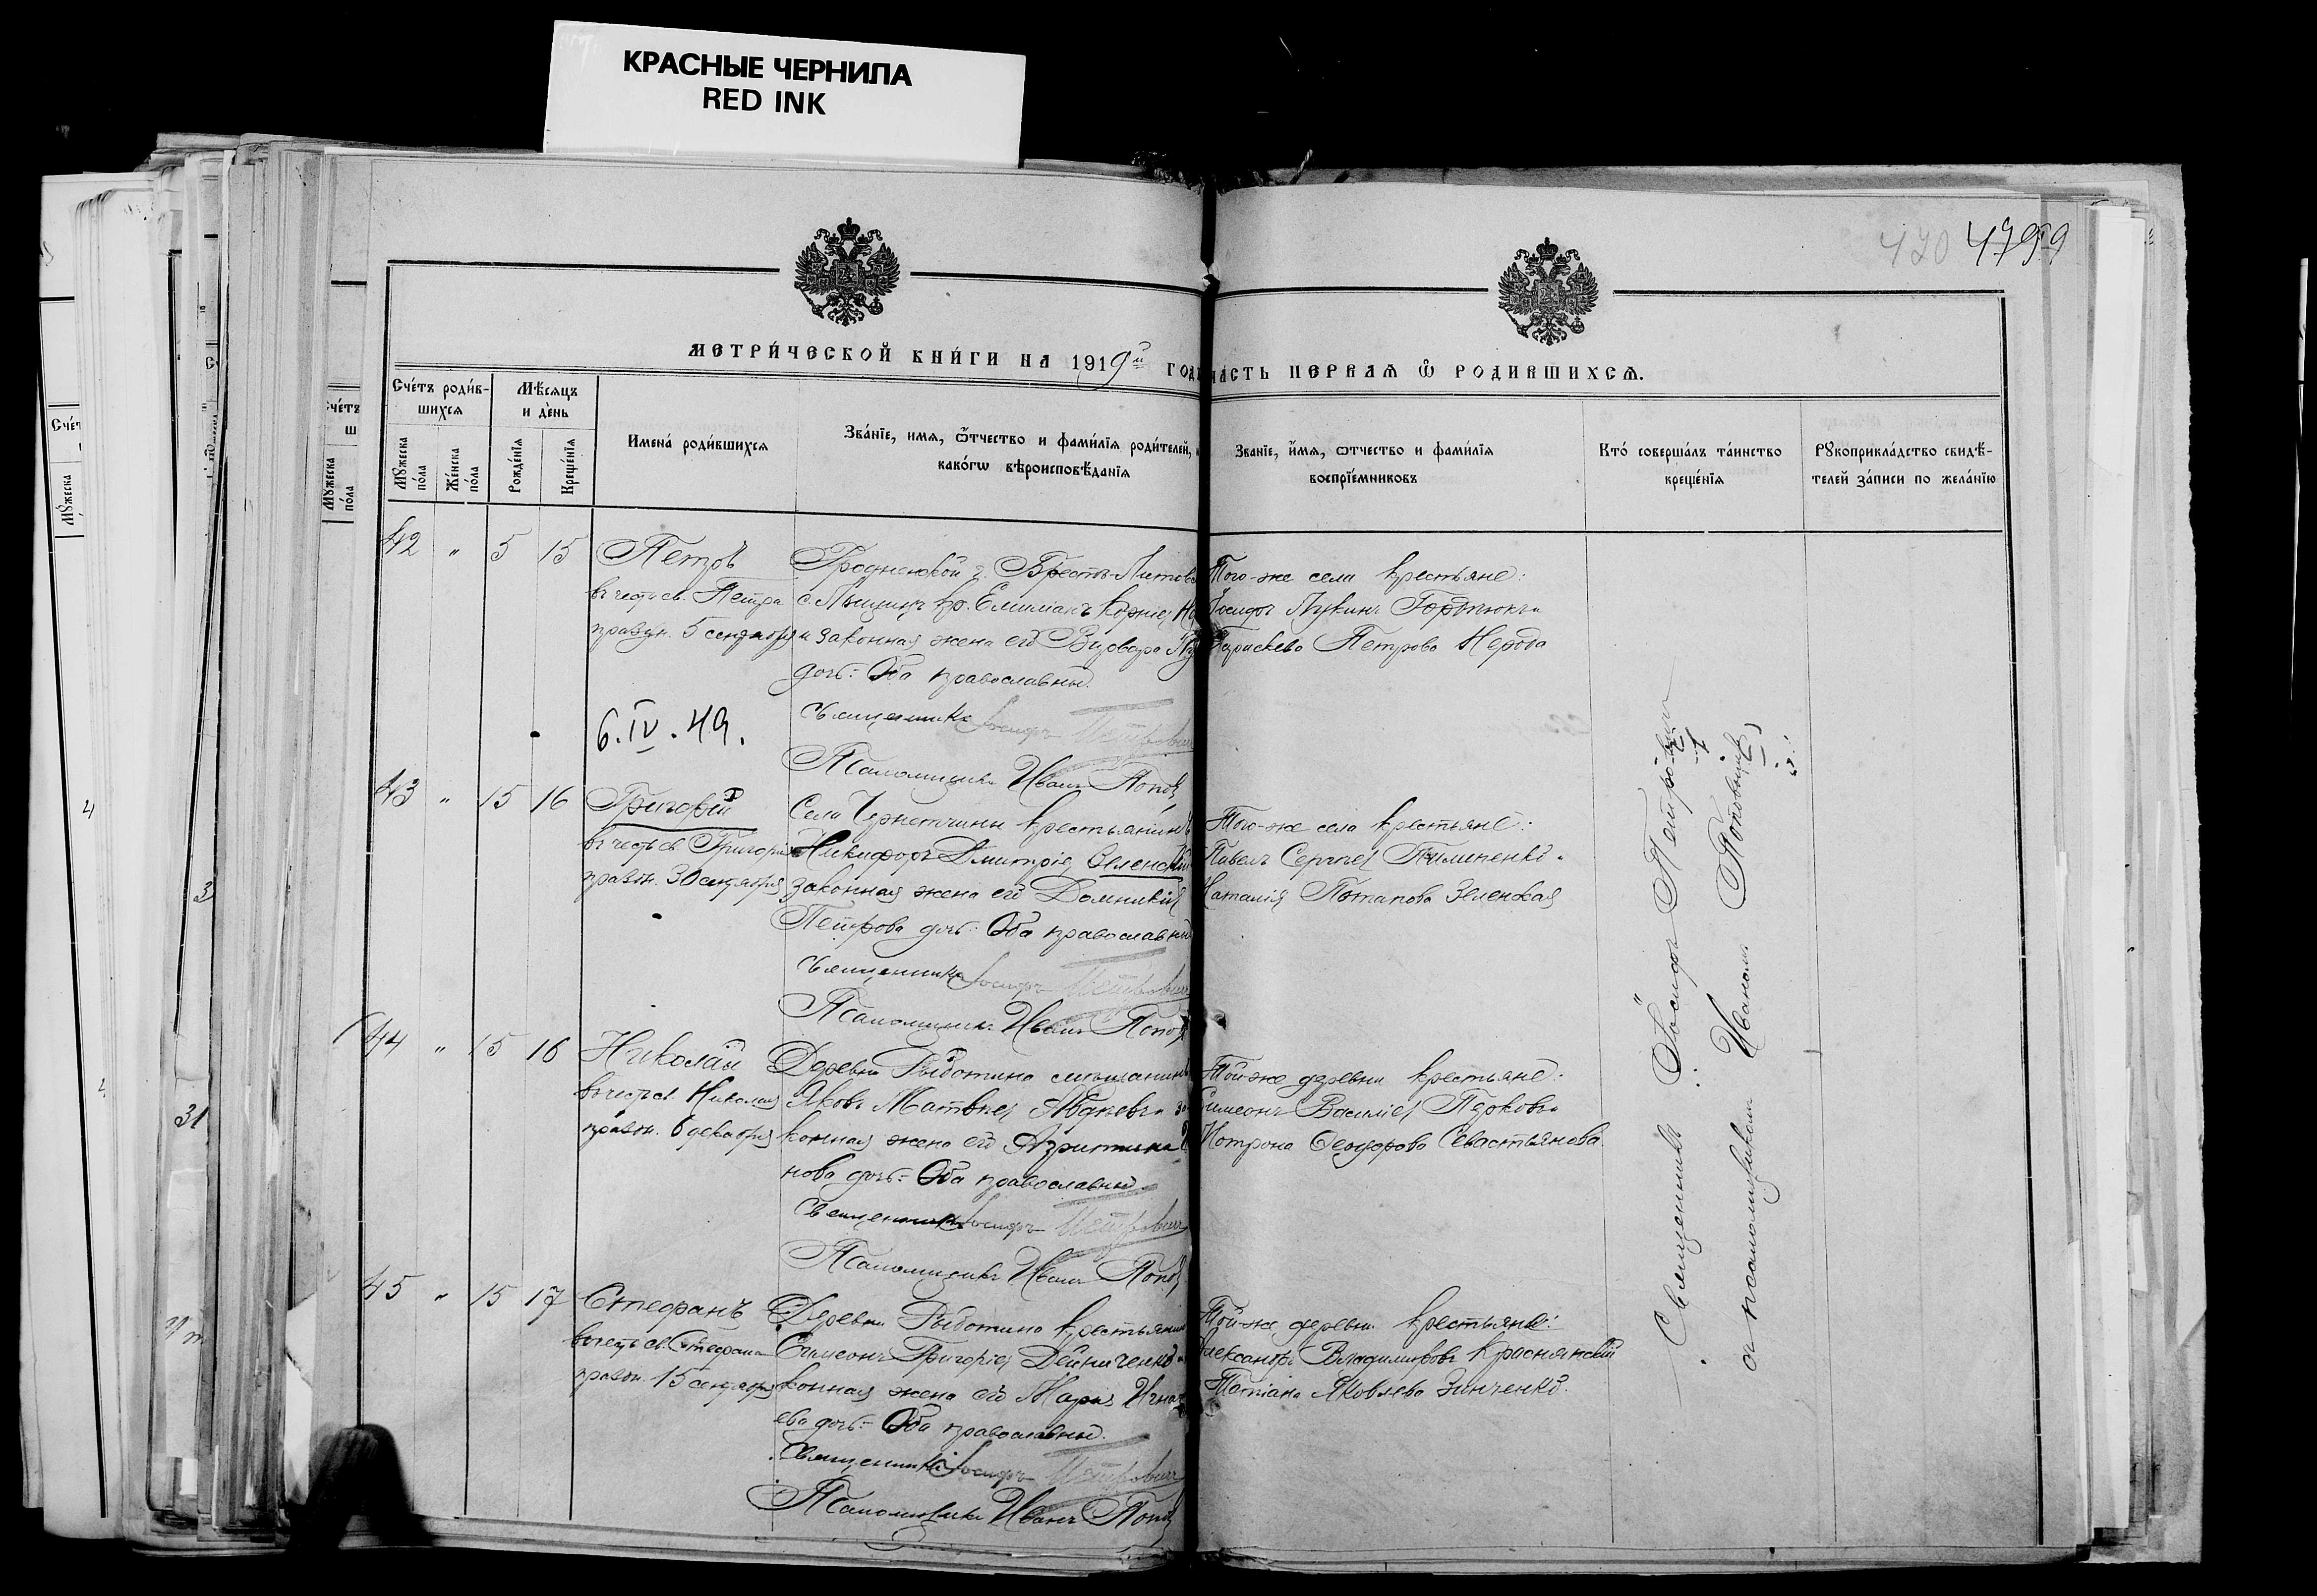 КРАСНЫЕ ЧЕРНИЛА
RED INK
470 4799
МЕТРИ́ЧЕСКОЙ КНИ́ГИ НА 1919й ГОДЪ
ЧАСТЬ ПЕРВАЯ Ѡ РОДИВШИХСЯ.
Сче́тъ роди́в-
шихся
Мꙋжеска по́ла
Же́нска по́ла
Мѣсяцъ
и де́нь
Рожде́нїя
Креще́нїя
Имена́ роди́вшихся
Зва́нїе, имя, ѻ҆́тчество и фами́лїя роди́телей, и
како́гѡ вѣроисповѣ́данїя
Званїе, и҆́мя, ѻтчество и фами́лїя
воспрїе́мниковъ
Кто́ соверша́лъ та́инство
креще́нїя
Рꙋкоприкла́дство свидѣ́-
телей за́писи по жела́нїю
42 " 5 15 Петръ
въ честь св. Петра
праздн. 5 сентября
6.IV.49.
Гродненской г. Брестъ-Литовс
кр. Емиліанъ Корніев
и законная жена его
дочь: Оба православные.
Священникъ Іосифъ Петрович
Псаломщикъ Иванъ Попов
Того-же села крестьяне:
Іосифъ Лукинъ и
Параскева Петрова
43 " 15 16 Григорій
въ честь св. Григорія
праздн. 30 сентября
Села Чернетчины крестьянинъ
Никифоръ Дмитріев Зеленскій
законная жена его Домникія
Петрова дочь: Оба православные
Священникъ Іосифъ Петрович
Псаломщикъ Иванъ Попов
Того-же села крестьяне:
Павелъ Сергѣев Пилипенко и
Наталія Потапова Зеленская
44 " 15 16 Николай
въ честь св. Николая
праздн. 6 декабря
Деревни Рыботина мѣщанинъ
Яковъ Матвѣев и за
конная жена его
нова дочь: Оба православные.
Священникъ Іосифъ Петрович
Псаломщикъ Иванъ Попов
Той-же деревни крестьяне:
Симеонъ Василіев и
Матрона Ѳеодорова Севастьянова.
45 " 15 17 Стефанъ
въ честь св. Стефана
праздн. 15 сентября
Деревни Рыботина крестьянин
Симеонъ Григоріев Дейниченко и
конная жена его Марія Игнать
ева дочь: Оба православные.
Священникъ Іосифъ Петрович
Псаломщикъ Иванъ Попов
Той-же деревни крестьяне:
Александръ Владиміровъ Краснянскій
Татіана Яковлева Зинченко.
Священникъ Іосифъ Петрович
с псаломщиком Иваномъ Поповицк